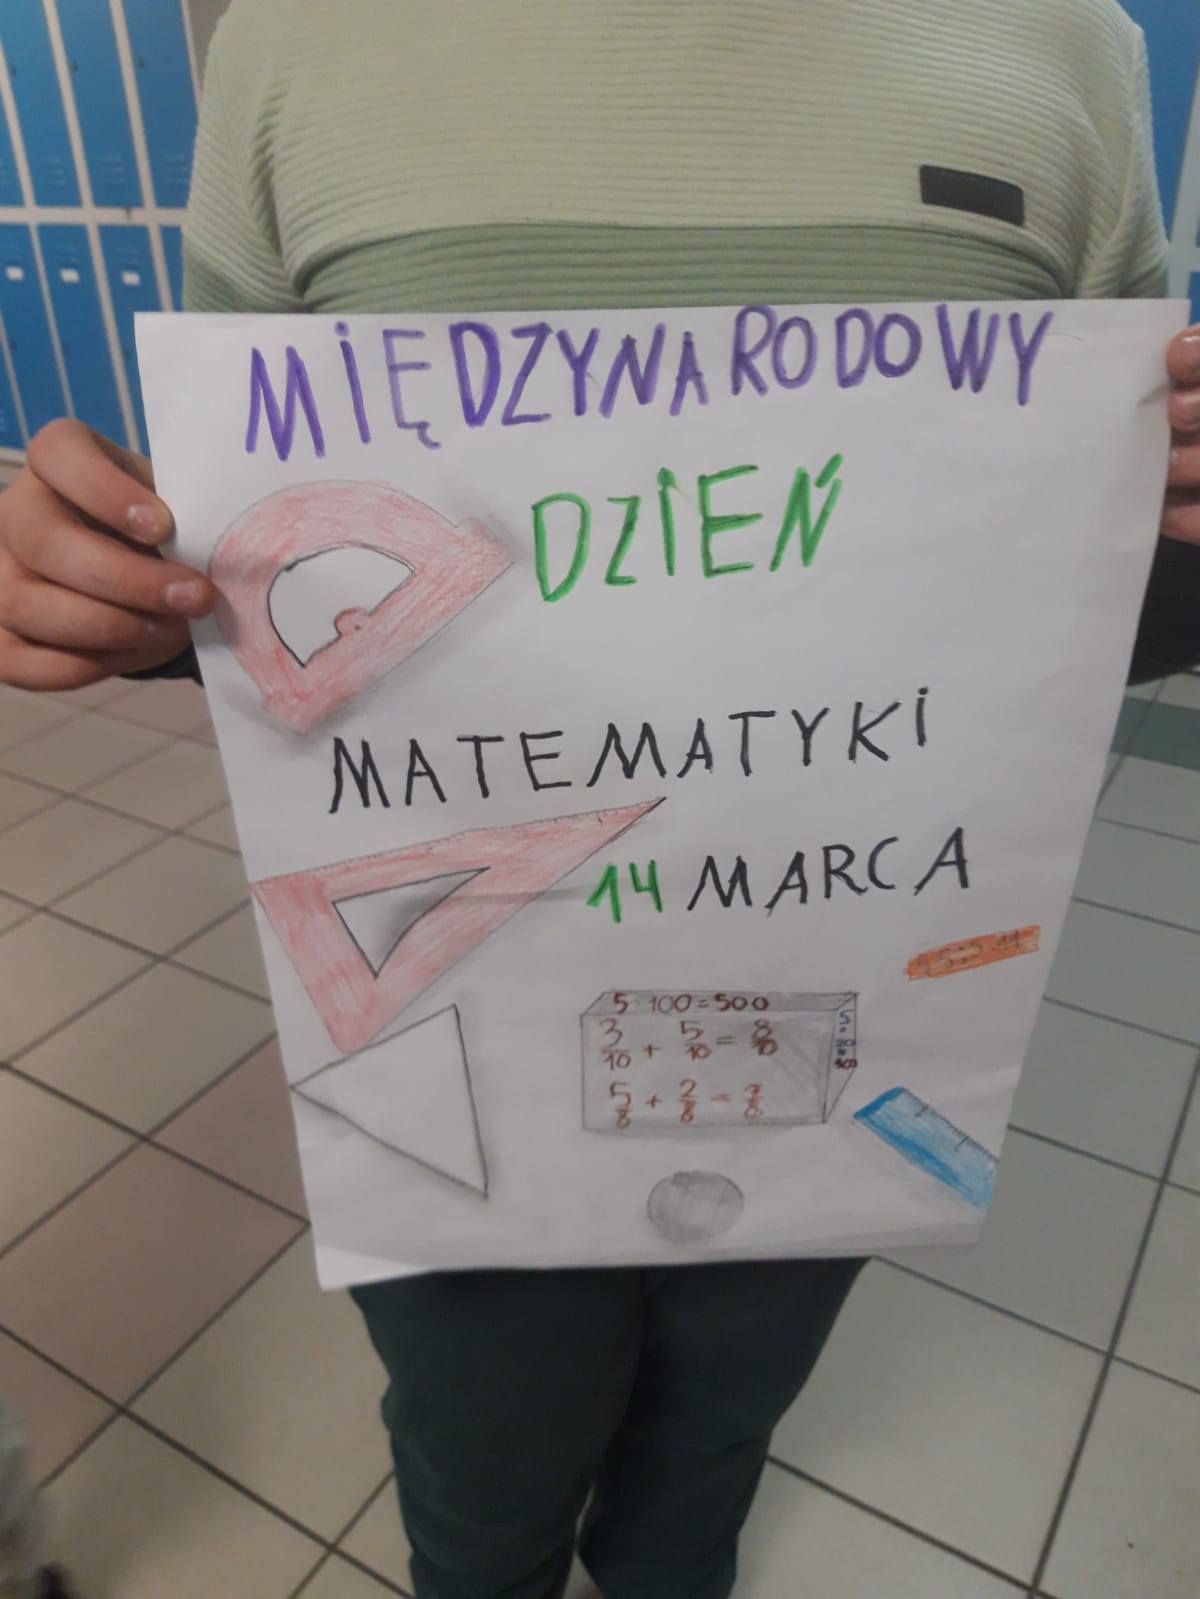 MIĘDZYNARODOWY
DZIEŃ
MATEMATYKI
14 MARCA
5 · 100 = 500
3/10 + 5/10 = 8/10
5/8 + 2/8 = 7/8